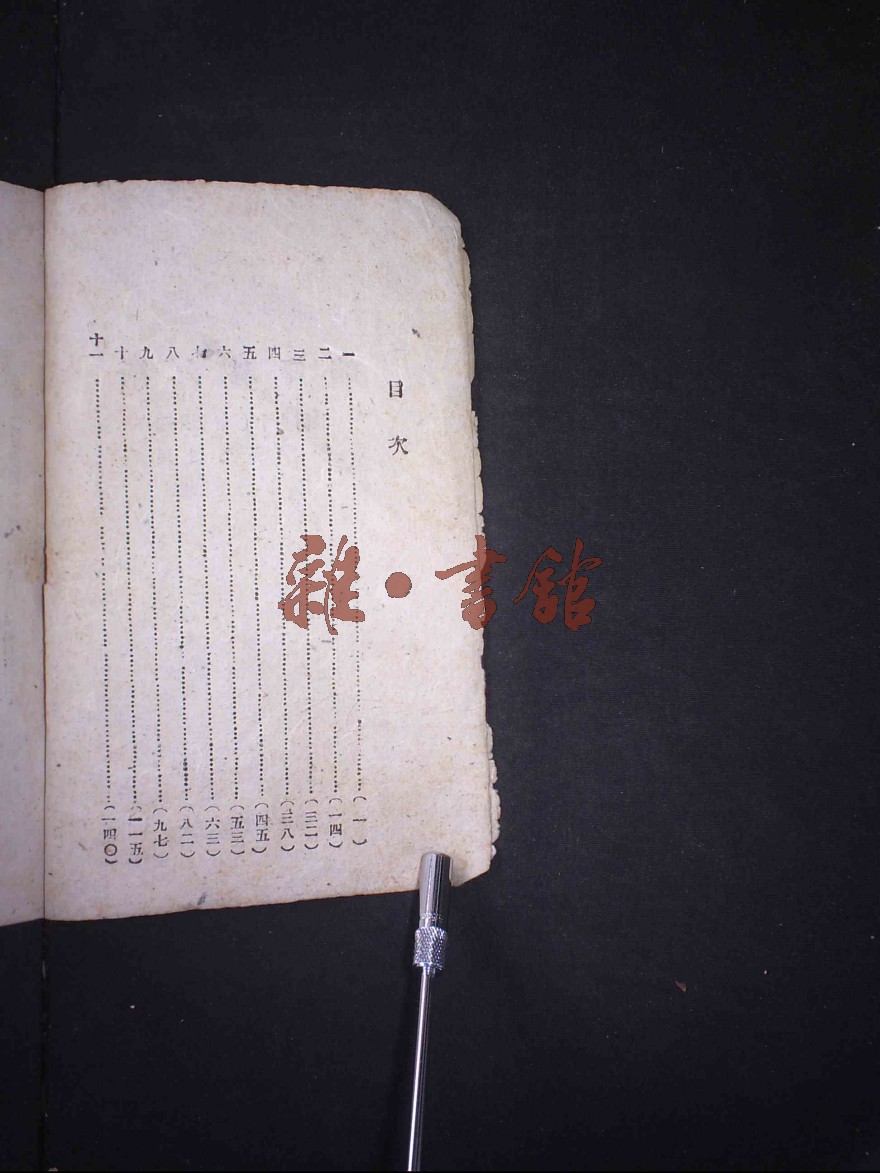 目次
一……(一)
二……(一四)
三……(三二)
四……(三八)
五……(四五)
六……(五三)
七……(六三)
八……(八二)
九……(九七)
十……(一一五)
十一……(一四〇)
雜·書館